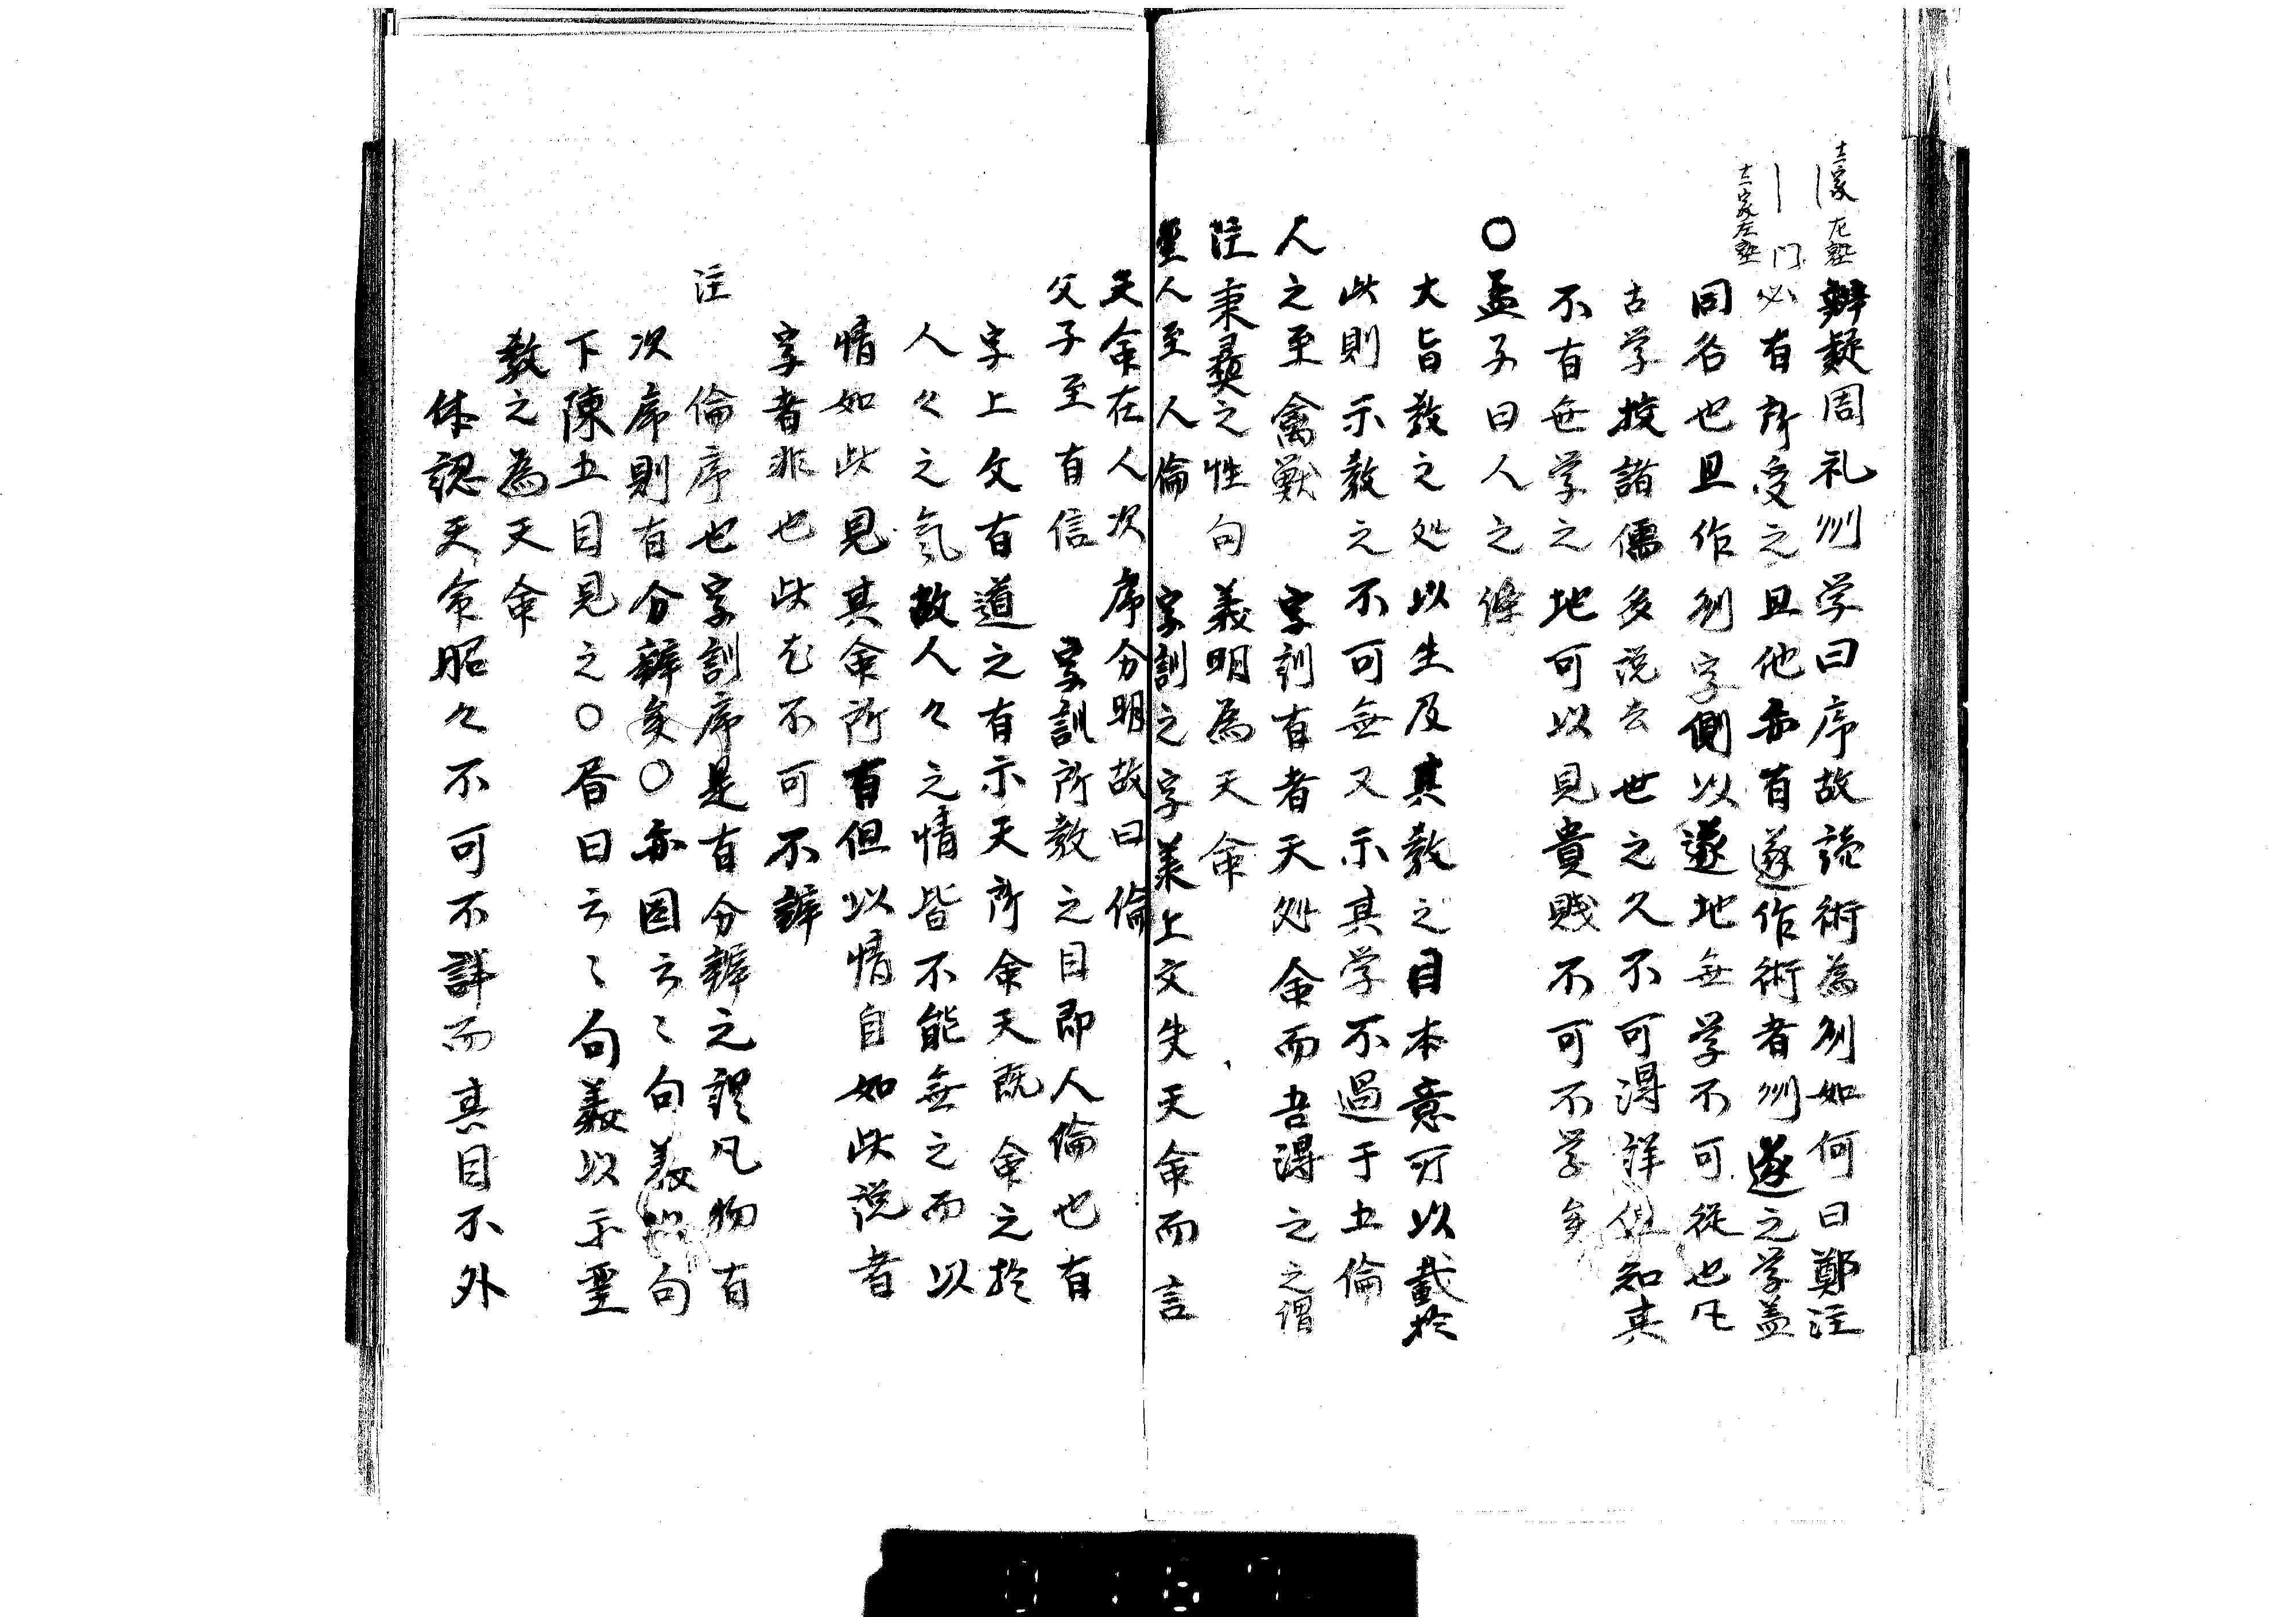 辨疑周礼州学曰序故読術為州如何曰鄭注
必有所受之且他亦有遂作術者州遂之学蓋
同名也且作州字側以遂地無学不可従也凡
古学校諸儒多説去世之久不可得詳但知其
不有無学之地可以見貴賤不可不学矣
○孟子曰人之條
大旨教之処以生及其教之目本意所以載於
此則示教之不可無又示其学不過于五倫
人之至禽獣 字訓有者天処命而吾得之之謂
注秉彝之性句義明為天命
聖人至人倫 字訓之字義上文失天命而言
天命在人次序分明故曰倫
父子至有信 字訓所教之目即人倫也有
字上文有道之有示天所命天既命之於
人々之気故人々之情皆不能無之而以
情如此見其命所有但以情自如此説者
字者非也此尤不可不辨
注 倫序也字訓序是有分辨之謂凡物有
次序則有分辨矣○亦因云々句義 句
下陳五目見之○眉曰云々句義以示聖
教之為天命
体認天命昭々不可不詳而其目不外
十二家左塾
門
十一家左塾